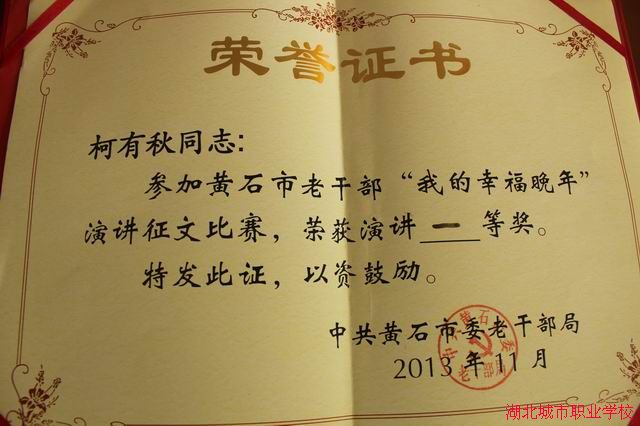 荣誉证书
柯有秋同志:
参加黄石市老干部“我的幸福晚年”
演讲征文比赛，荣获演讲一等奖。
特发此证，以资鼓励。
中共黄石市委老干部局
2013年11月
湖北城市职业学校